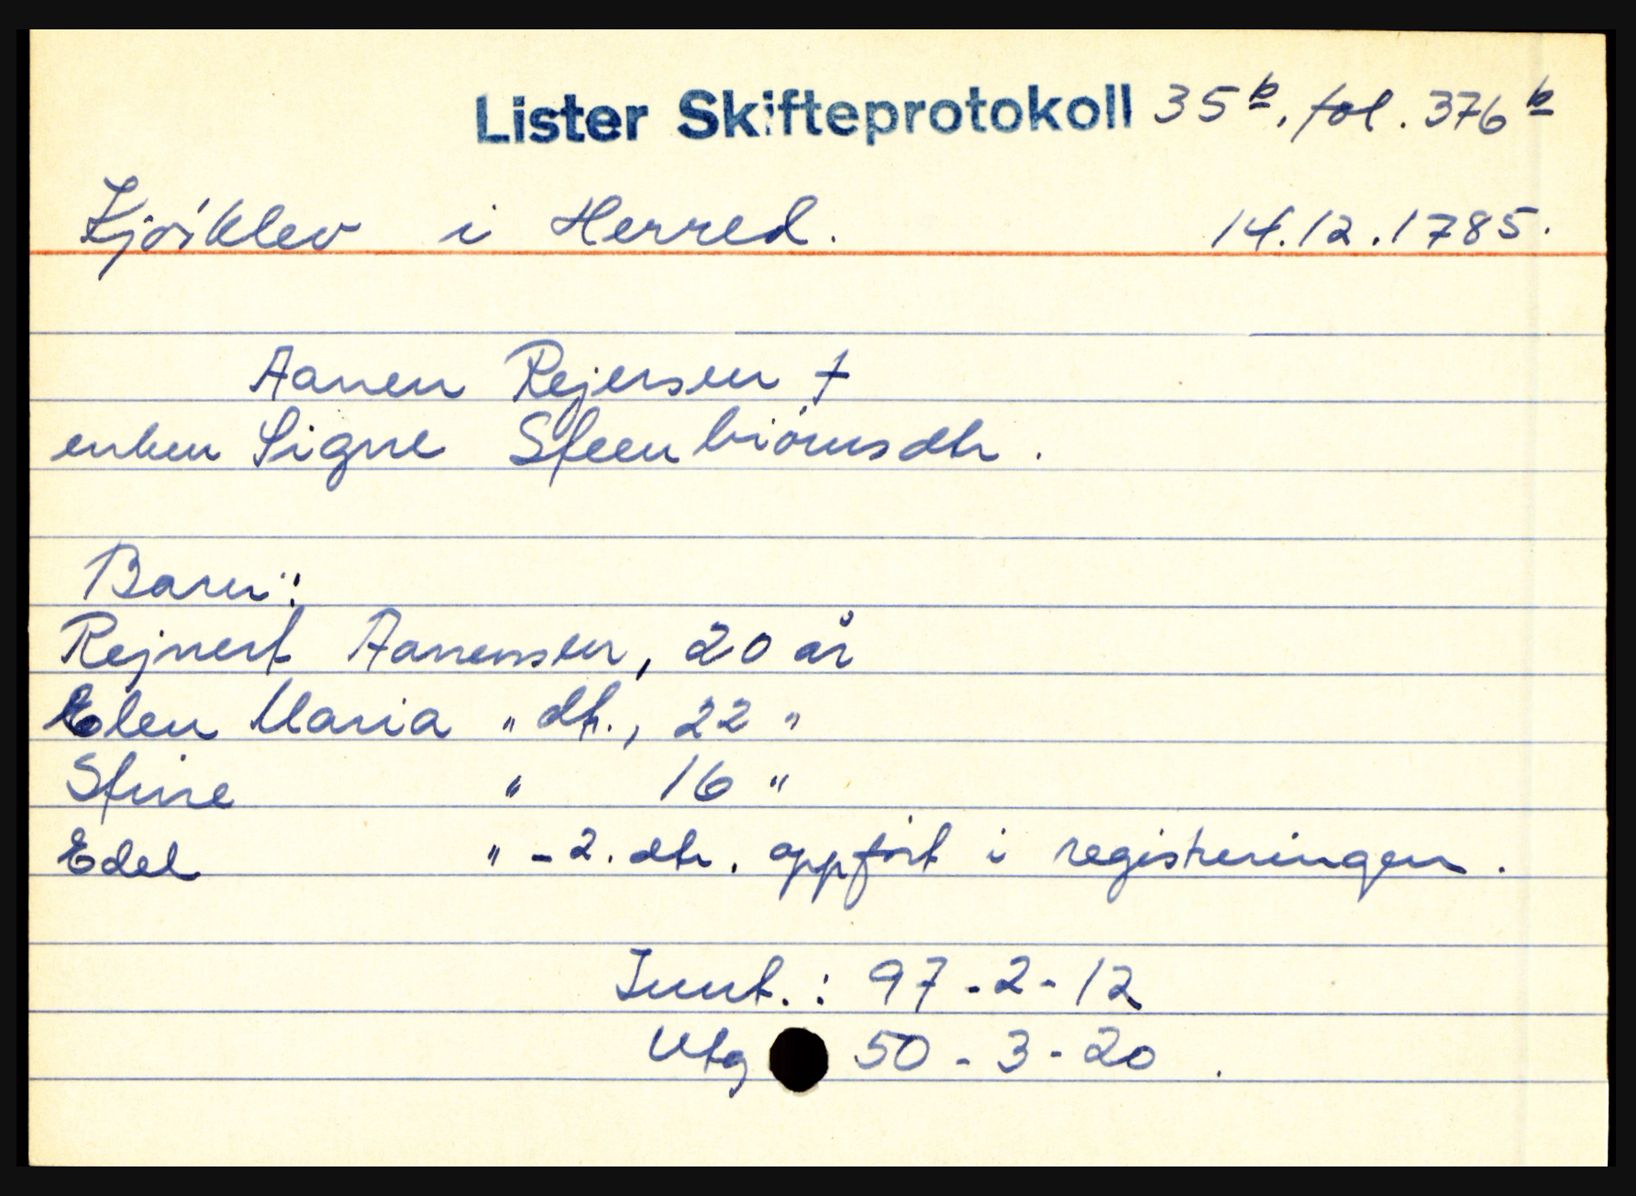 Lister Skifteprotokoll 35b, fol. 376b
Kjöklev i Herred. 14.12.1785.
Aanen Rejersen †
enken Signe Steenbiörnsdtr.
Barn:
Rejnert Aanensen, 20 år
Elen Maria " dtr., 22 "
Stine " 16 "
Edel " - 2. dtr. oppfört i registreringen.
Innt.: 97-2-12
Utg 50-3-20.